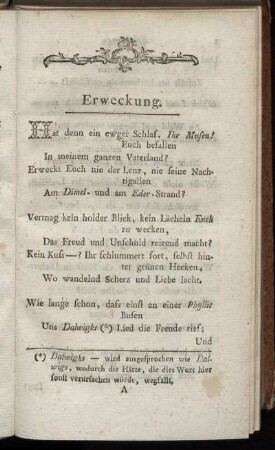 Erweckung.
Hat denn ein ew'ger Schlaf, Ihr Musen!
Euch befallen
In meinem ganzen Vaterland?
Erweckt Euch nie der Lenz, nie seine Nach-
tigallen
Am Dimel- und am Eder-Strand?
Vermag kein holder Blick, kein Lächeln Euch
zu wecken,
Das Freud und Unschuld reizend macht?
Kein Kuss—? Ihr schlummert fort, selbst hin-
ter grünen Hecken,
Wo wandelnd Scherz und Liebe lacht.
Wie lange schon, dass einst an einer Phyllis
Busen
Uns Dalwigks (*) Lied die Freude rief;
Und
(*) Dalwigks — wird ausgesprochen wie Dal-
wigs, wodurch die Härte, die dies Wort hier
sonst verursachen würde, wegfällt.
A